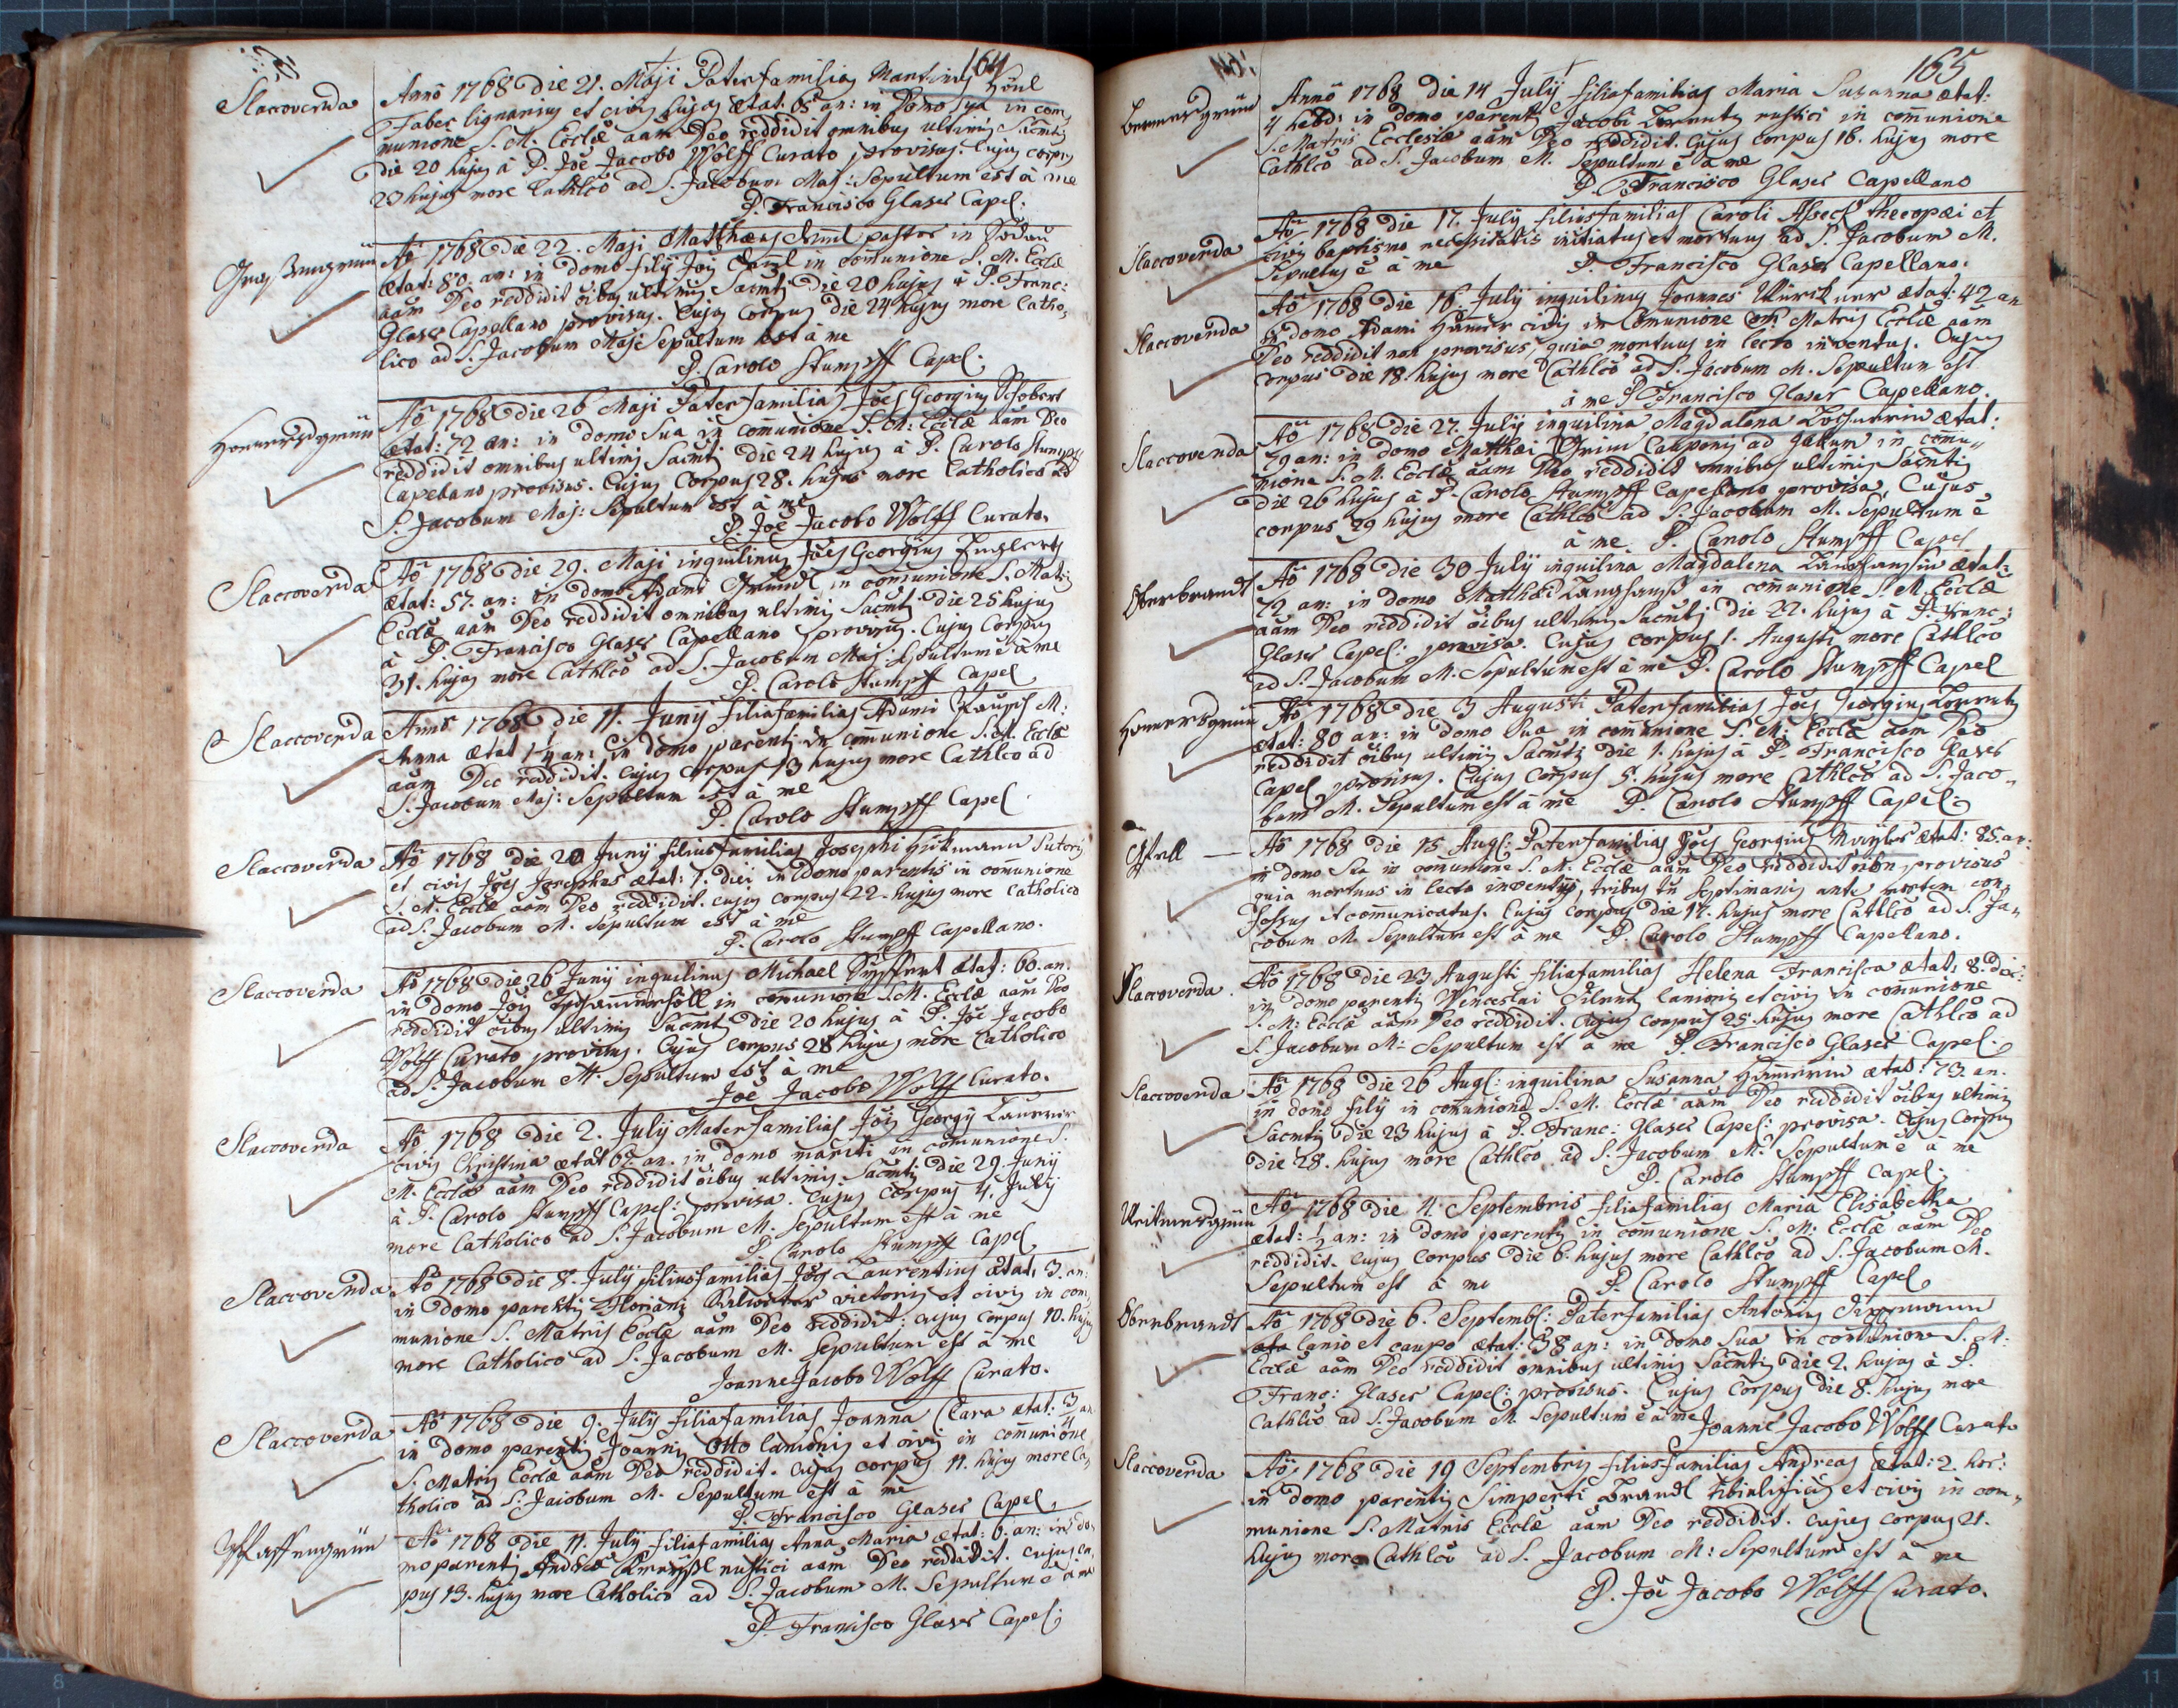 164
Slaccoverda
Anno 1768 Die 21. Maji Paterfamilias Martinus Hönl
Faber lignarius et civis hujas ætat. 65 an: in Domo Sua in com„
munione S. M. Ecclæ aãm Deo reddidit omnibus ultimis Sacmtis
die 20 hujus à P. Joẽ Jacobo Wolff Curato provisus. Cujus corpus
23 hujus more Cathlco ad S. Jacobum Maj: Sepultum est à me
P. Francisco Glaser Capel:
Aõ 1768 Die 22. Maji Matthæus pastor in Sodau
ætat: 80. an: in domo filij Jois in communione S. M. Ecclæ
aãm Deo reddidit õibus ultimis Sacmtis Die 20 hujus à P. Franc:
Glaser Capellano provisus. Cujus Corpus Die 24 hujus more Catho„
lico ad S. Jacobum Maj: Sepultum est à me
P. Carolo Stumpff Capel:
Hommersgrün
Aõ 1768 Die 26 Maji Paterfamilias Joes Georgius Schobert
ætat: 72 an: in domo Sua in comunione S. M: Ecclæ aãm Deo
reddidit omnibus ultimis Sacmtis Die 24 hujus à P. Carolo Stumpff
Capellano provisus. Cujus Corpus 28. hujus more Catholico ad
S. Jacobum Maj: Sepultum est à me
P. Joẽ Jacobo Wolff Curato.
Slaccoverda
Aõ 1768 Die 29. Maji inquilinus Joes Georgius
ætat: 57. an: in domo Adami in comunione S. Matris
Ecclæ aãm Deo reddidit omnibus ultimis Sacmtis Die 25 hujus
à P. Francisco Glaser Capellano provisus. Cujus Corpus
31. hujus more Cathlco ad S. Jacobum Maj: Sepultum ẽ à me
P. Carolo Stumpff Capel
Slaccoverda
Anno 1768 Die 11. Junij filiafamilias Adami M:
Anna ætat 1¼ an: in domo parentis in comunione S. M. Ecclæ
aãm Deo reddidit. Cujus Corpus 13 hujus more Cathlco ad
S. Jacobum Maj: Sepultum est à me
P. Carolo Stumpff Capel
Slaccoverda
Aõ 1768 Die 20 Junij filiusfamilias Josephi Hickmann Sutoris
et civis Joes Josephus ætat: 1. diei in Domo parentis in comunione
S. M. Ecclæ aãm Deo reddidit. Cujus Corpus 22. hujus more Catholico
ad S. Jacobum M. Sepultum est à me
P. Carolo Stumpff Capellano.
Slaccoverda
Aõ 1768 Die 26 Junij inquilinus Michael Seyffert ætat: 60. an.
in domo Jois in comunione S. M. Ecclæ aãm Deo
reddidit õibus ultimis Sacmtis Die 20 hujus à P. Joẽ Jacobo
Wolff Curato provisus. Cujus Corpus 28 hujus more Catholico
ad S. Jacobum M. Sepultum est à me
Joẽ Jacobo Wolff Curato.
Slaccoverda
Aõ 1768 Die 2. Julij Materfamilias Jois Georgij
civis Christina ætat 67. an. in domo mariti in comunione S.
M. Ecclæ aãm Deo reddidit õibus ultimis Sacmtis Die 29 Junij
à P. Carolo Stumpff Capel: provisa. Cujus Corpus 4. Julij
more Catholico ad S. Jacobum M. Sepultum est à me
P. Carolo Stumpff Capel
Slaccoverda
Aõ 1768 Die 8. Julij filiusfamilias Joes Laurentius ætat: 3. an:
in domo parentis Floriani vietoris et civis in com„
munione S. Matris Ecclæ aãm Deo reddidit: cujus Corpus 10. hujus
more Catholico ad S. Jacobum M. Sepultum est à me
Joanne Jacobo Wolff Curato.
Slaccoverda
Aõ 1768 Die 9. Julij filiafamilias Joanna Clara ætat: ¾ an
in domo parentis Joannis Otto lanionis et civis in communione
S. Matris Ecclæ aãm Deo reddidit. Cujus Corpus 11. hujus more Ca„
tholico ad S. Jacobum M. Sepultum est à me
P. Francisco Glaser Capel.
Pfaffengrün
Aõ 1768 Die 11. Julij filiafamilias Anna Maria ætat: 6. an: in do„
mo parentis Andreæ rustici aãm Deo reddidit. Cujus cor„
pus 13. hujus more Catholico ad S. Jacobum M. Sepultum ẽ à me
P. Francisco Glaser Capel:
165
Anno 1768 Die 14 Julij filiafamilias Maria Susanna ætat:
4 hebd: in domo parentis Jacobi Lorentz rustici in comunione
S. Matris Ecclesiæ aãm Deo reddidit. Cujus Corpus 16. hujus more
Cathlco ad S. Jacobum M. Sepultum ẽ à me
P. Francisco Glaser Capellano
Slaccoverda
Aõ 1768 Die 17. Julij filiusfamilias Caroli thecopœi et
civis baptismo necessitatis initiatus et mortuus ad S. Jacobum M.
Sepultus ẽ à me P. Francisco Glaser Capellano.
Slaccoverda
Aõ 1768 Die 16. Julij inquilinus Joannes ætat: 42 an
in domo Adami Hammer civis in Comunione Matris Ecclæ aãm
Deo reddidit non provisus, quia mortuus in lecto inventus. Cujus
corpus Die 18. hujus more Cathlco ad S. Jacobum M. Sepultum est
à me P. Francisco Glaser Capellano.
Slaccoverda
Aõ 1768 Die 27. Julij inquilina Magdalena ætat:
79 an: in domo Matthæi Grim Cauponis ad gallum in comu„
nione S. M. Ecclæ aãm Deo reddidit omnibus ultimis Sacmtis
Die 26 hujus à P. Carolo Stumpff Capellano provisa, Cujus
corpus 29 hujus more Cathlco ad S. Jacobum M. Sepultum ẽ
à me P. Carolo Stumpff Capel
Oberbrandt
Aõ 1768 Die 30 Julij inquilina Magdalena Langhansin ætat:
72 an: in domo Matthæi Langhanß in comunione S. M. Ecclæ
aãm Deo reddidit õibus ultimis Sacmtis Die 22. hujus à P. Franc:
Glaser Capel: provisa. Cujus Corpus 1. Augusti more Cathlco
ad S. Jacobum M. Sepultum est à me P. Carolo Stumpff Capel
Hommersgrün
Aõ 1768 Die 3 Augusti Paterfamilias Joes Georgius Lorentz
ætat: 80 an: in domo Sua in comunione S. M: Ecclæ aãm Deo
reddidit õibus ultimis Sacmtis Die 1. hujus à P. Francisco Glaser
Capel provisus. Cujus Corpus 5. hujus more Cathlco ad S. Jaco„
bum M. Sepultum est à me P. Carolo Stumpff Capel:
Gfell
Aõ 1768 Die 15 Aug: Paterfamilias Joes Georgius ætat: 85. an:
in domo Sua in comunione S. M. Ecclæ aãm Deo reddidit non provisus
quia mortuus in lecto inventus, tribus tñ Septimanis ante mortem con„
fessus et comunicatus. Cujus Corpus Die 17. hujus more Cathlco ad S. Ja„
cobum M. Sepultum est à me P. Carolo Stumpff Capellano.
Slaccoverda
Aõ 1768 Die 23 Augusti filiafamilias Helena Francisca ætat: 8. die:
in domo parentis Wenceslai lanionis et civis in comunione
S. M: Ecclæ aãm Deo reddidit. Cujus Corpus 25. hujus more Cathlco ad
S. Jacobum M: Sepultum est à me P. Francisco Glaser Capel:
Slaccoverda
Aõ 1768 Die 26 Aug: inquilina Susanna Hammerin ætat: 73. an.
in domo filij in comunione S. M. Ecclæ aãm Deo reddidit õibus ultimis
Sacmtis Die 23 hujus à P. Franc: Glaser Capel: provisa. Cujus Corpus
Die 28. hujus more Cathlco ad S. Jacobum M. Sepultum ẽ à me
P. Carolo Stumpff Capel:
Aõ 1768 Die 4. Septembris filiafamilias Maria Elisabetha
ætat: ½ an: in domo parentis in comunione S. M: Ecclæ aãm Deo
reddidit. Cujus Corpus Die 6. hujus more Cathlco ad S. Jacobum M.
Sepultum est à me P. Carolo Stumpff Capel
Oberbrandt
Aõ 1768 Die 6. Septemb: Paterfamilias Antonius
lanio et caupo ætat: 38 an: in domo Sua in comunione S. M:
Ecclæ aãm Deo reddidit omnibus ultimis Sacmtis Die 2. hujus à P.
Franc: Glaser Capel: provisus. Cujus Corpus Die 8. hujus more
Cathlco ad S. Jacobum M. Sepultum ẽ à me Joanne Jacobo Wolff Curato
Slaccoverda
Aõ 1768 Die 19 Septembris filiusfamilias Andreas ætat: 2. hor:
in domo parentis Simperti et civis in com„
munione S. Matris Ecclæ aãm Deo reddidit. Cujus Corpus 21.
hujus more Cathlco ad S. Jacobum M: Sepultum est à me
P. Joẽ Jacobo Wolff Curato.
8
11